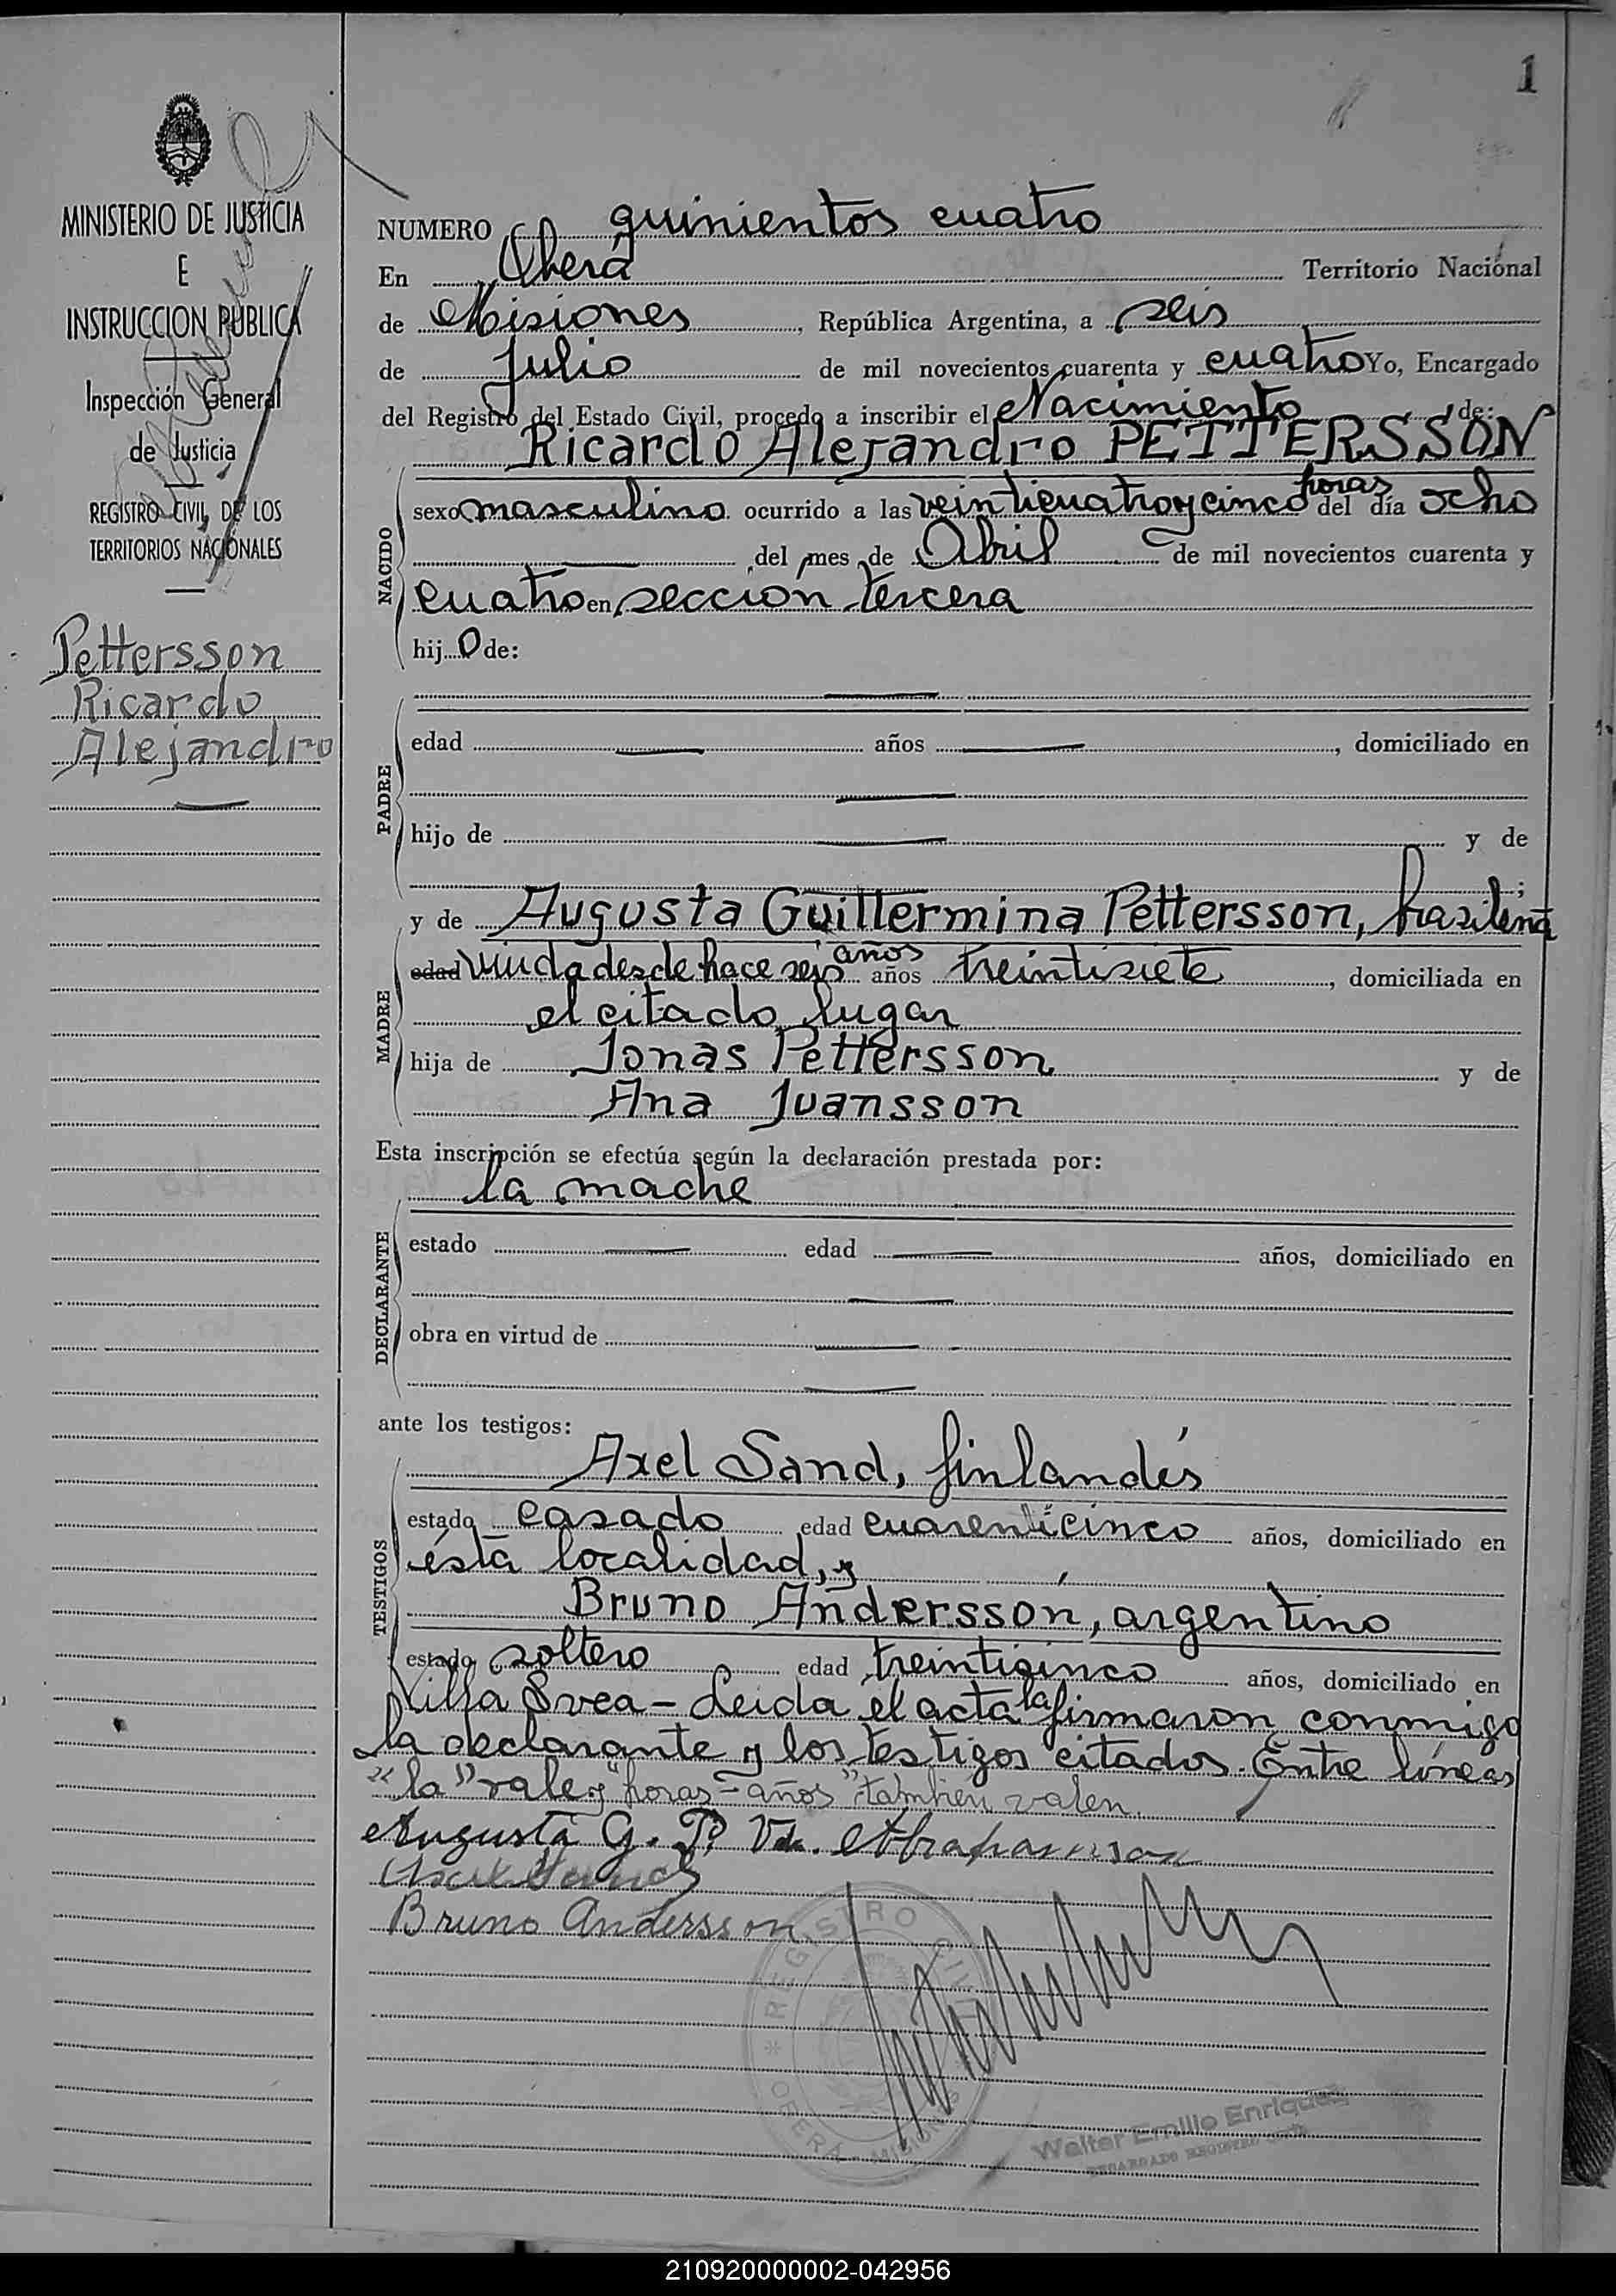 1
MINISTERIO DE JUSTICIA
E
INSTRUCCION PUBLICA
Inspección General
de Justicia
REGISTRO CIVIL DE LOS
TERRITORIOS NACIONALES
Pettersson
Ricardo
Alejandro
NUMERO quinientos cuatro
En Oberá Territorio Nacional
de Misiones, República Argentina, a seis
de Julio de mil novecientos cuarenta y cuatro Yo, Encargado
del Registro del Estado Civil, procedo a inscribir el Nacimiento de:
Ricardo Alejandro PETTERSSON
NACIDO
sexo masculino ocurrido a las veinticuatro y cinco horas del día ocho
del mes de Abril de mil novecientos cuarenta y
cuatro en sección tercera
hijo de:
PADRE
edad años, domiciliado en
hijo de y de
;
MADRE
y de Augusta Guillermina Pettersson, brasileña
edad viuda desde hace seis años años treintisiete, domiciliada en
el citado lugar
hija de Jonas Pettersson y de
Ana Juansson
Esta inscripción se efectúa según la declaración prestada por:
la madre
DECLARANTE
estado edad años, domiciliado en
obra en virtud de
ante los testigos:
TESTIGOS
Axel Sand, finlandés
estado casado edad cuarenticinco años, domiciliado en
ésta localidad, y
Bruno Andersson, argentino
estado soltero edad treinticinco años, domiciliado en
Villa Svea - Leida el acta la firmaron conmigo
la declarante y los testigos citados. Entre líneas
"la" vale y "horas - años" también valen.
Augusta G. P. Vda. Abrahamsson
Bruno Andersson
REGISTRO CIVIL
OBERA - MISIONES
Walter Emilio Enriquez
ENCARGADO REGISTRO CIVIL
210920000002-042956